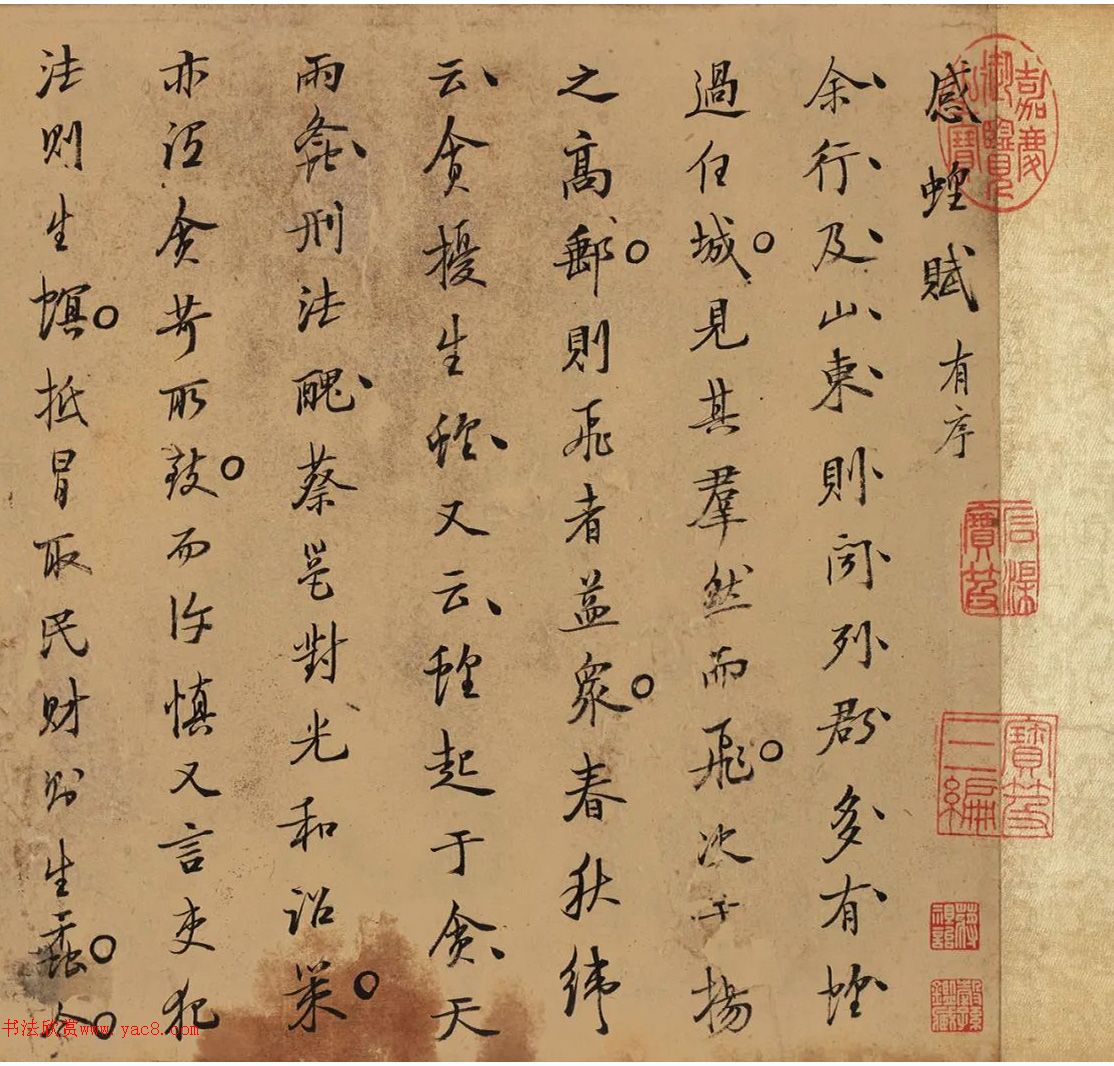 感蝗賦 有序
余行及山東則聞列郡多有蝗
過任城見其羣然而飛次于揚
之高郵則飛者益衆春秋緯
云貪擾生蝗又云蝗起于貪天
雨螽刑法醜蔡邕對光和詔策
亦謂貪苛所致而許慎又言吏犯
法則生螟抵冒取民財則生蟊今
嘉慶御覽之寶
石渠寶笈
寶笈三編
蔣祖詒
穀孫鑑藏
书法欣赏www.yac8.com